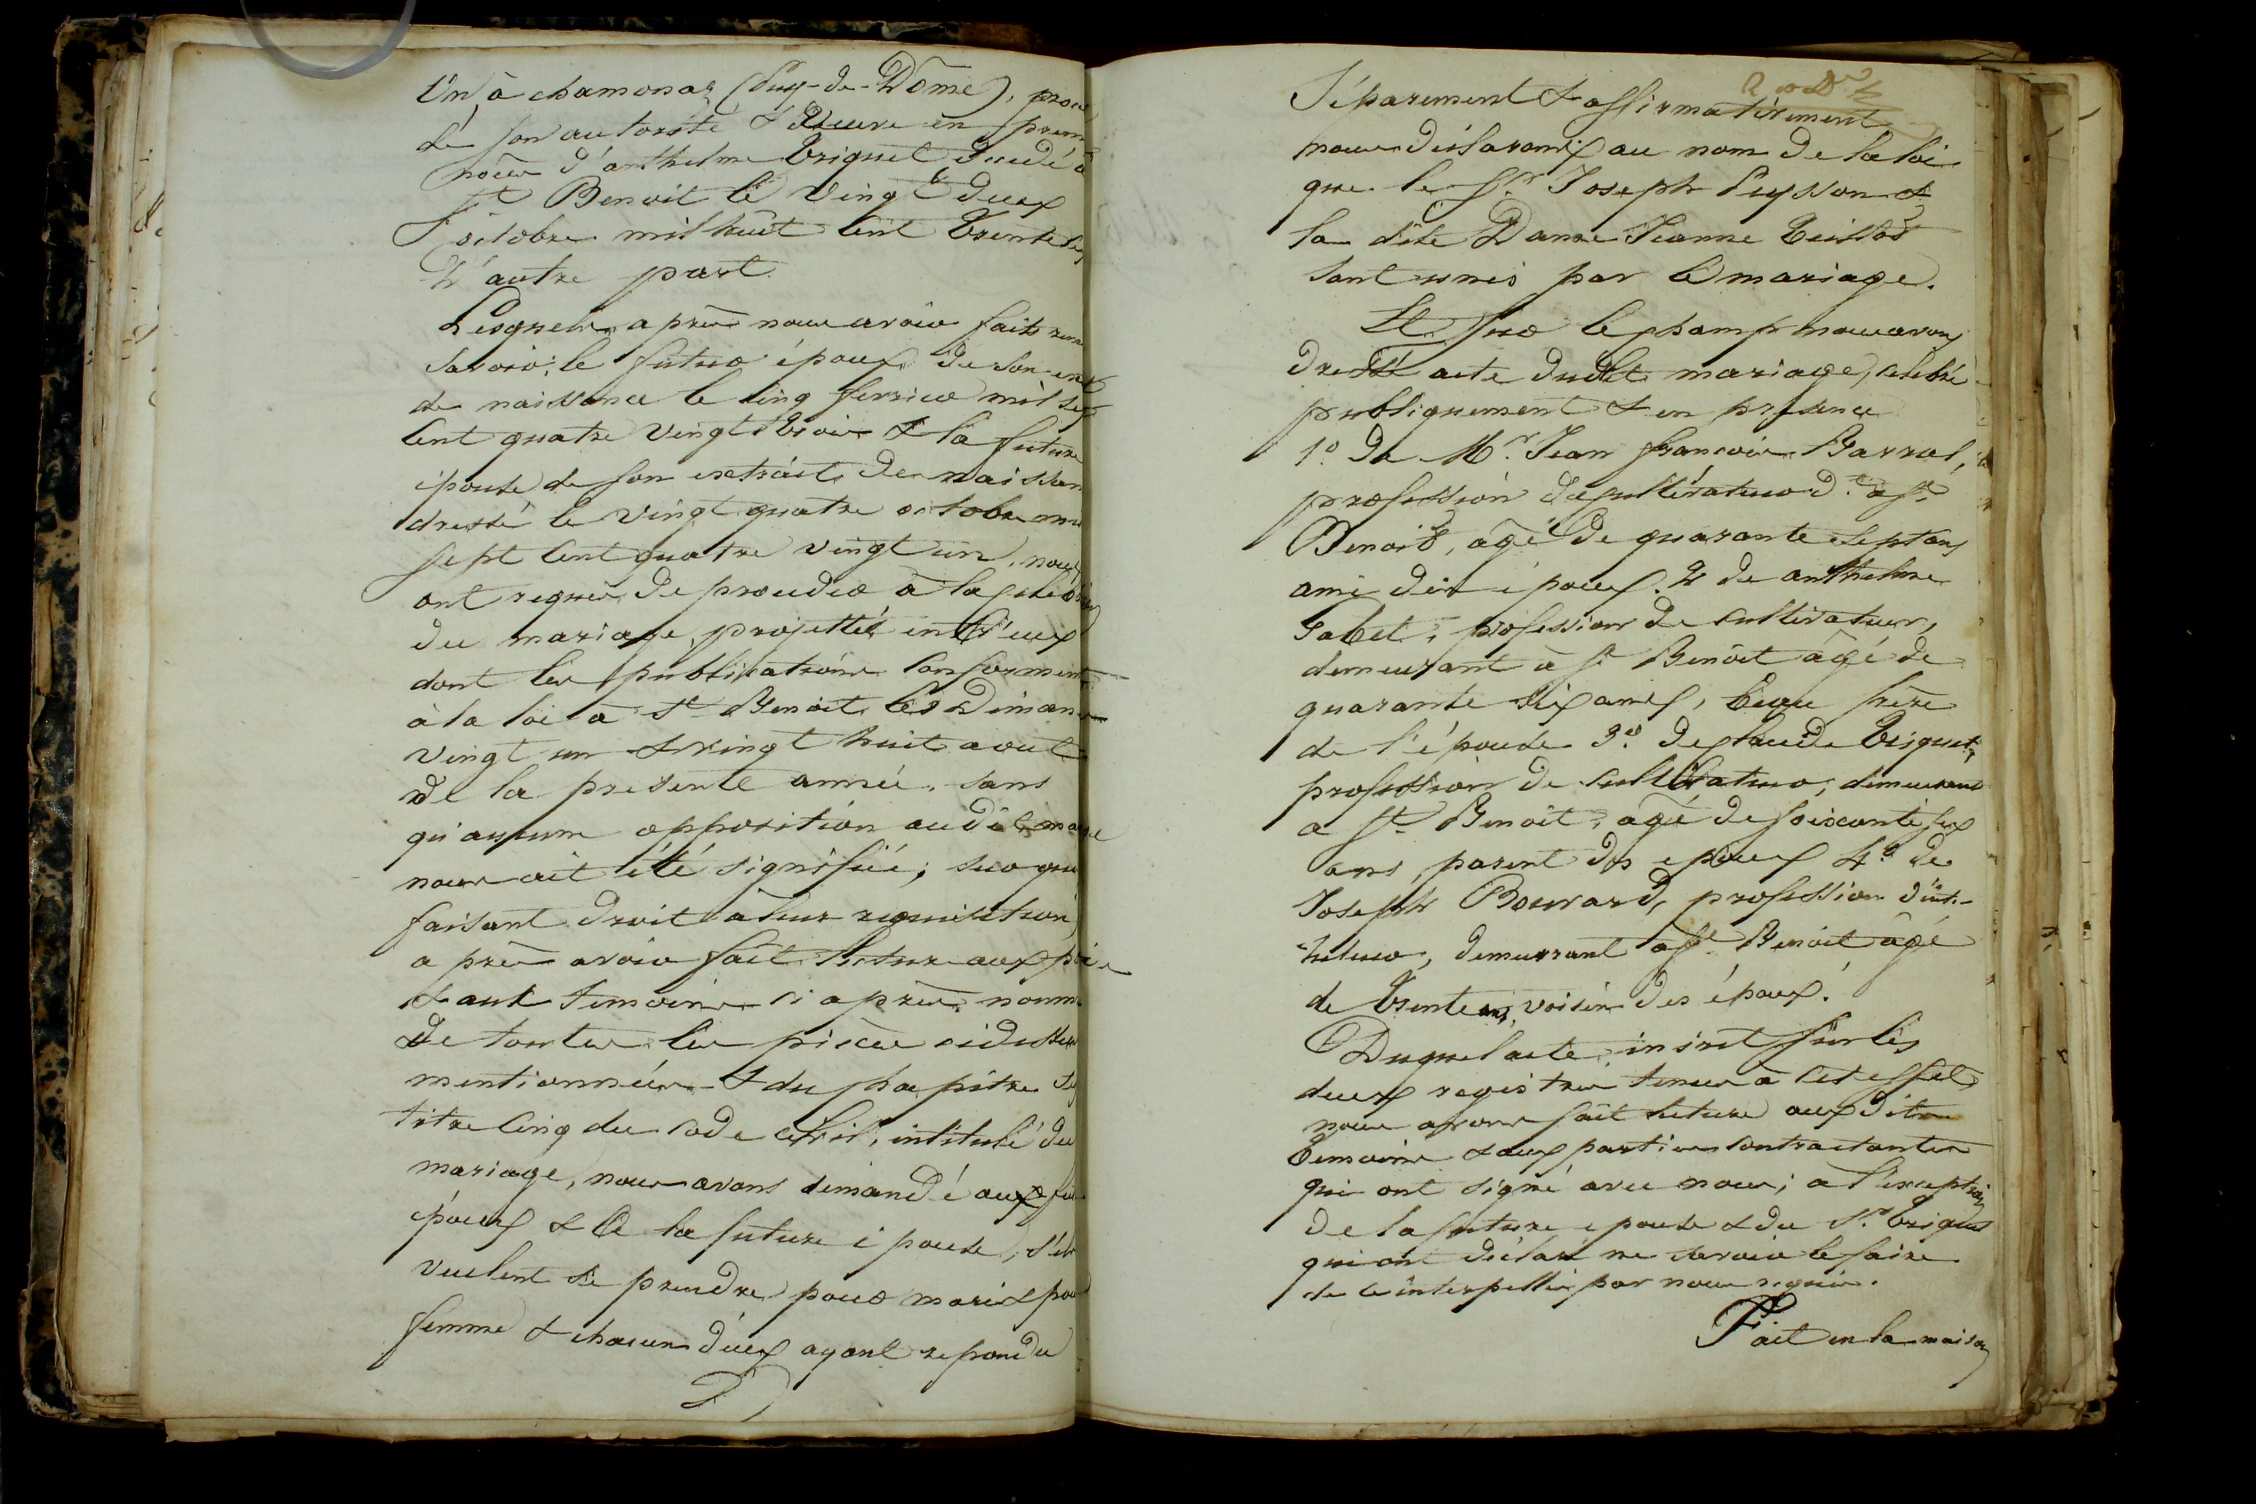 un, à chamonas (Puy-de-Dôme),
de son autorité & Veuve en
nôces d'anthelme Triquet décédé à
St Benoit le vingt deux
octobre mil huit cent trente
d'autre part.
Lesquels après nous avoir fait
savoir: le futur époux de son
de naissance le cinq fervier mil sept
cent quatre vingt trois & la future
épouse de son extrait de naissan
dressé le vingt quatre octobre mil
sept cent quatre vingt un, nous
ont requis de proceder à la
du mariage projetté entr'eux
dont les publications conforment
à la loi à St Benoit les Diman
vingt un & vingt huit aout
de la presente année, sans
qu'aucune opposition audit
nous ait été signifiée; sur quoi
faisant droit à leur requisition
après avoir fait lecture aux
& aux temoins ci après nommé
de toutes les pièces cidessus
mentionnées & du chapitre
titre cinq du code civil, intitulé du
mariage, nous avons demandé aux
époux & à la future épouse, s'ils
veulent se prendre pour mari & pour
femme & chacun d'eux ayant repondu
séparement & affirmativement
nous déclarons au nom de la loi
que le Sr Joseph Puysson &
la dite Dame Jeanne
sont unis par le mariage.
Et sur le champ nous avons
dressé acte dudit mariage, célebré
publiquement & en presence
1o De Mr Jean françois Barral,
profession de cultivateur dt à St
Benoit, âgé de quarante sept ans
ami des époux. 2 de anthelme
Gabet, profession de cultivateur,
demeurant à St Benoit âgé de
quarante six ans, beau frère
de l'épouse 3o de claude Triquet,
profession de cultivateur, demeurant
a St Benoit, agé de soixante six
ans, parent des epoux 4o de
Joseph Bouvard, profession d'insti-
tuteur, demeurant a St Benoit âgé
de trente ans, voisin des époux.
Duquel acte, inscrit sur les
deux registres tenus à cet effet
nous avons fait lecture aux dits
temoins & aux parties contractantes
qui ont signé avec nous; a l'exception
de la future epouse & du Sr triquet
qui ont déclaré ne savoir le faire
de ce interpellés par nous requis.
Fait en la maison